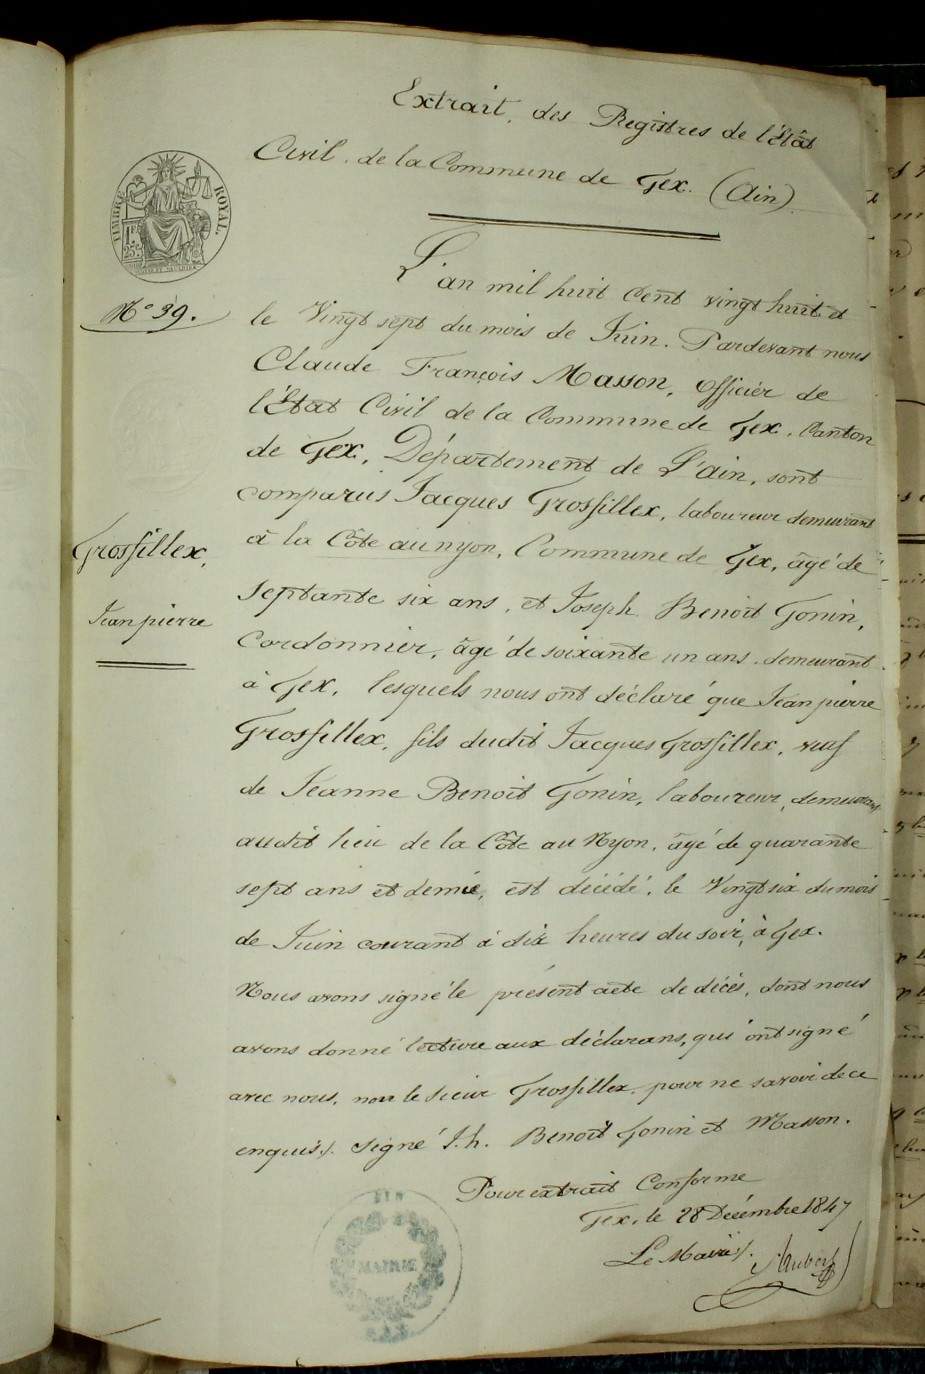 Extrait, des Registres de l'État
Civil. de la Commune de Gex. (Ain).
TIMBRE ROYAL.
1F.
25c.
N° 39.
L'an mil huit cent vingt huit et
le Vingt sept du mois de Juin. Pardevant nous
Claude François Masson, officier de
l'État Civil de la Commune de Gex, Canton
de Gex, Département de L'ain, sont
comparus Jacques Grosfillex, laboureur demeurant
à la Côte au nyon, Commune de Gex, âgé de
Septante six ans, et Joseph Benoit Gonin,
Cordonnier, âgé de soixante un ans, demeurant
à Gex, lesquels nous ont déclaré que Jean pierre
Grosfillex, fils dudit Jacques Grosfillex, veuf
de Jeanne Benoit Gonin, laboureur, demeurant
audit lieu de la Côte au Nyon, âgé de quarante
sept ans et demie, est décédé, le Vingt six du mois
de Juin courant à dix heures du soir, à Gex.
Nous avons signé le présent acte de décès, dont nous
avons donné lecture aux déclarans, qui ont signé
avec nous, non le sieur Grosfillex, pour ne savoir de ce
enquis ./. Signé J. h. Benoit Gonin et Masson.
Grosfillex,
Jean pierre
Pour extrait Conforme
Gex, le 28 Décembre 1847
Le Maire ./.
AIN
MAIRIE
GEX